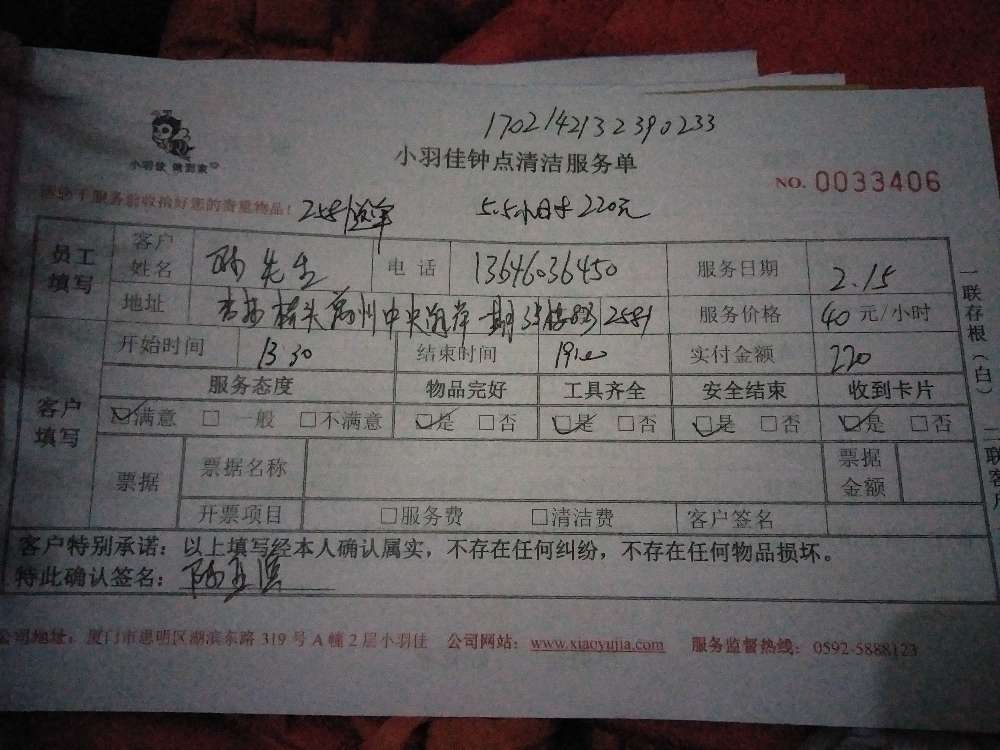 17021421323902​33
小羽佳 做到家
小羽佳钟点清洁服务单
NO. 0033406
请必于服务前收拾好您的贵重物品！
5.5小时 220元
员工填写
客户姓名 先生 电话 13646036450 服务日期 2.15
地址 中央 2581 服务价格 40 元/小时
客户填写
开始时间 13:30 结束时间 19:00 实付金额 220
服务态度 物品完好 工具齐全 安全结束 收到卡片
☑满意 □一般 □不满意 ☑是 □否 ☑是 □否 ☑是 □否 ☑是 □否
票据 票据名称 票据金额
开票项目 □服务费 □清洁费 客户签名
客户特别承诺：以上填写经本人确认属实，不存在任何纠纷，不存在任何物品损坏。
特此确认签名：
公司地址：厦门市思明区湖滨东路 319 号 A 幢 2 层小羽佳 公司网站：www.xiaoyujia.com 服务监督热线：0592-5888123
一联存根（白）
二联客户